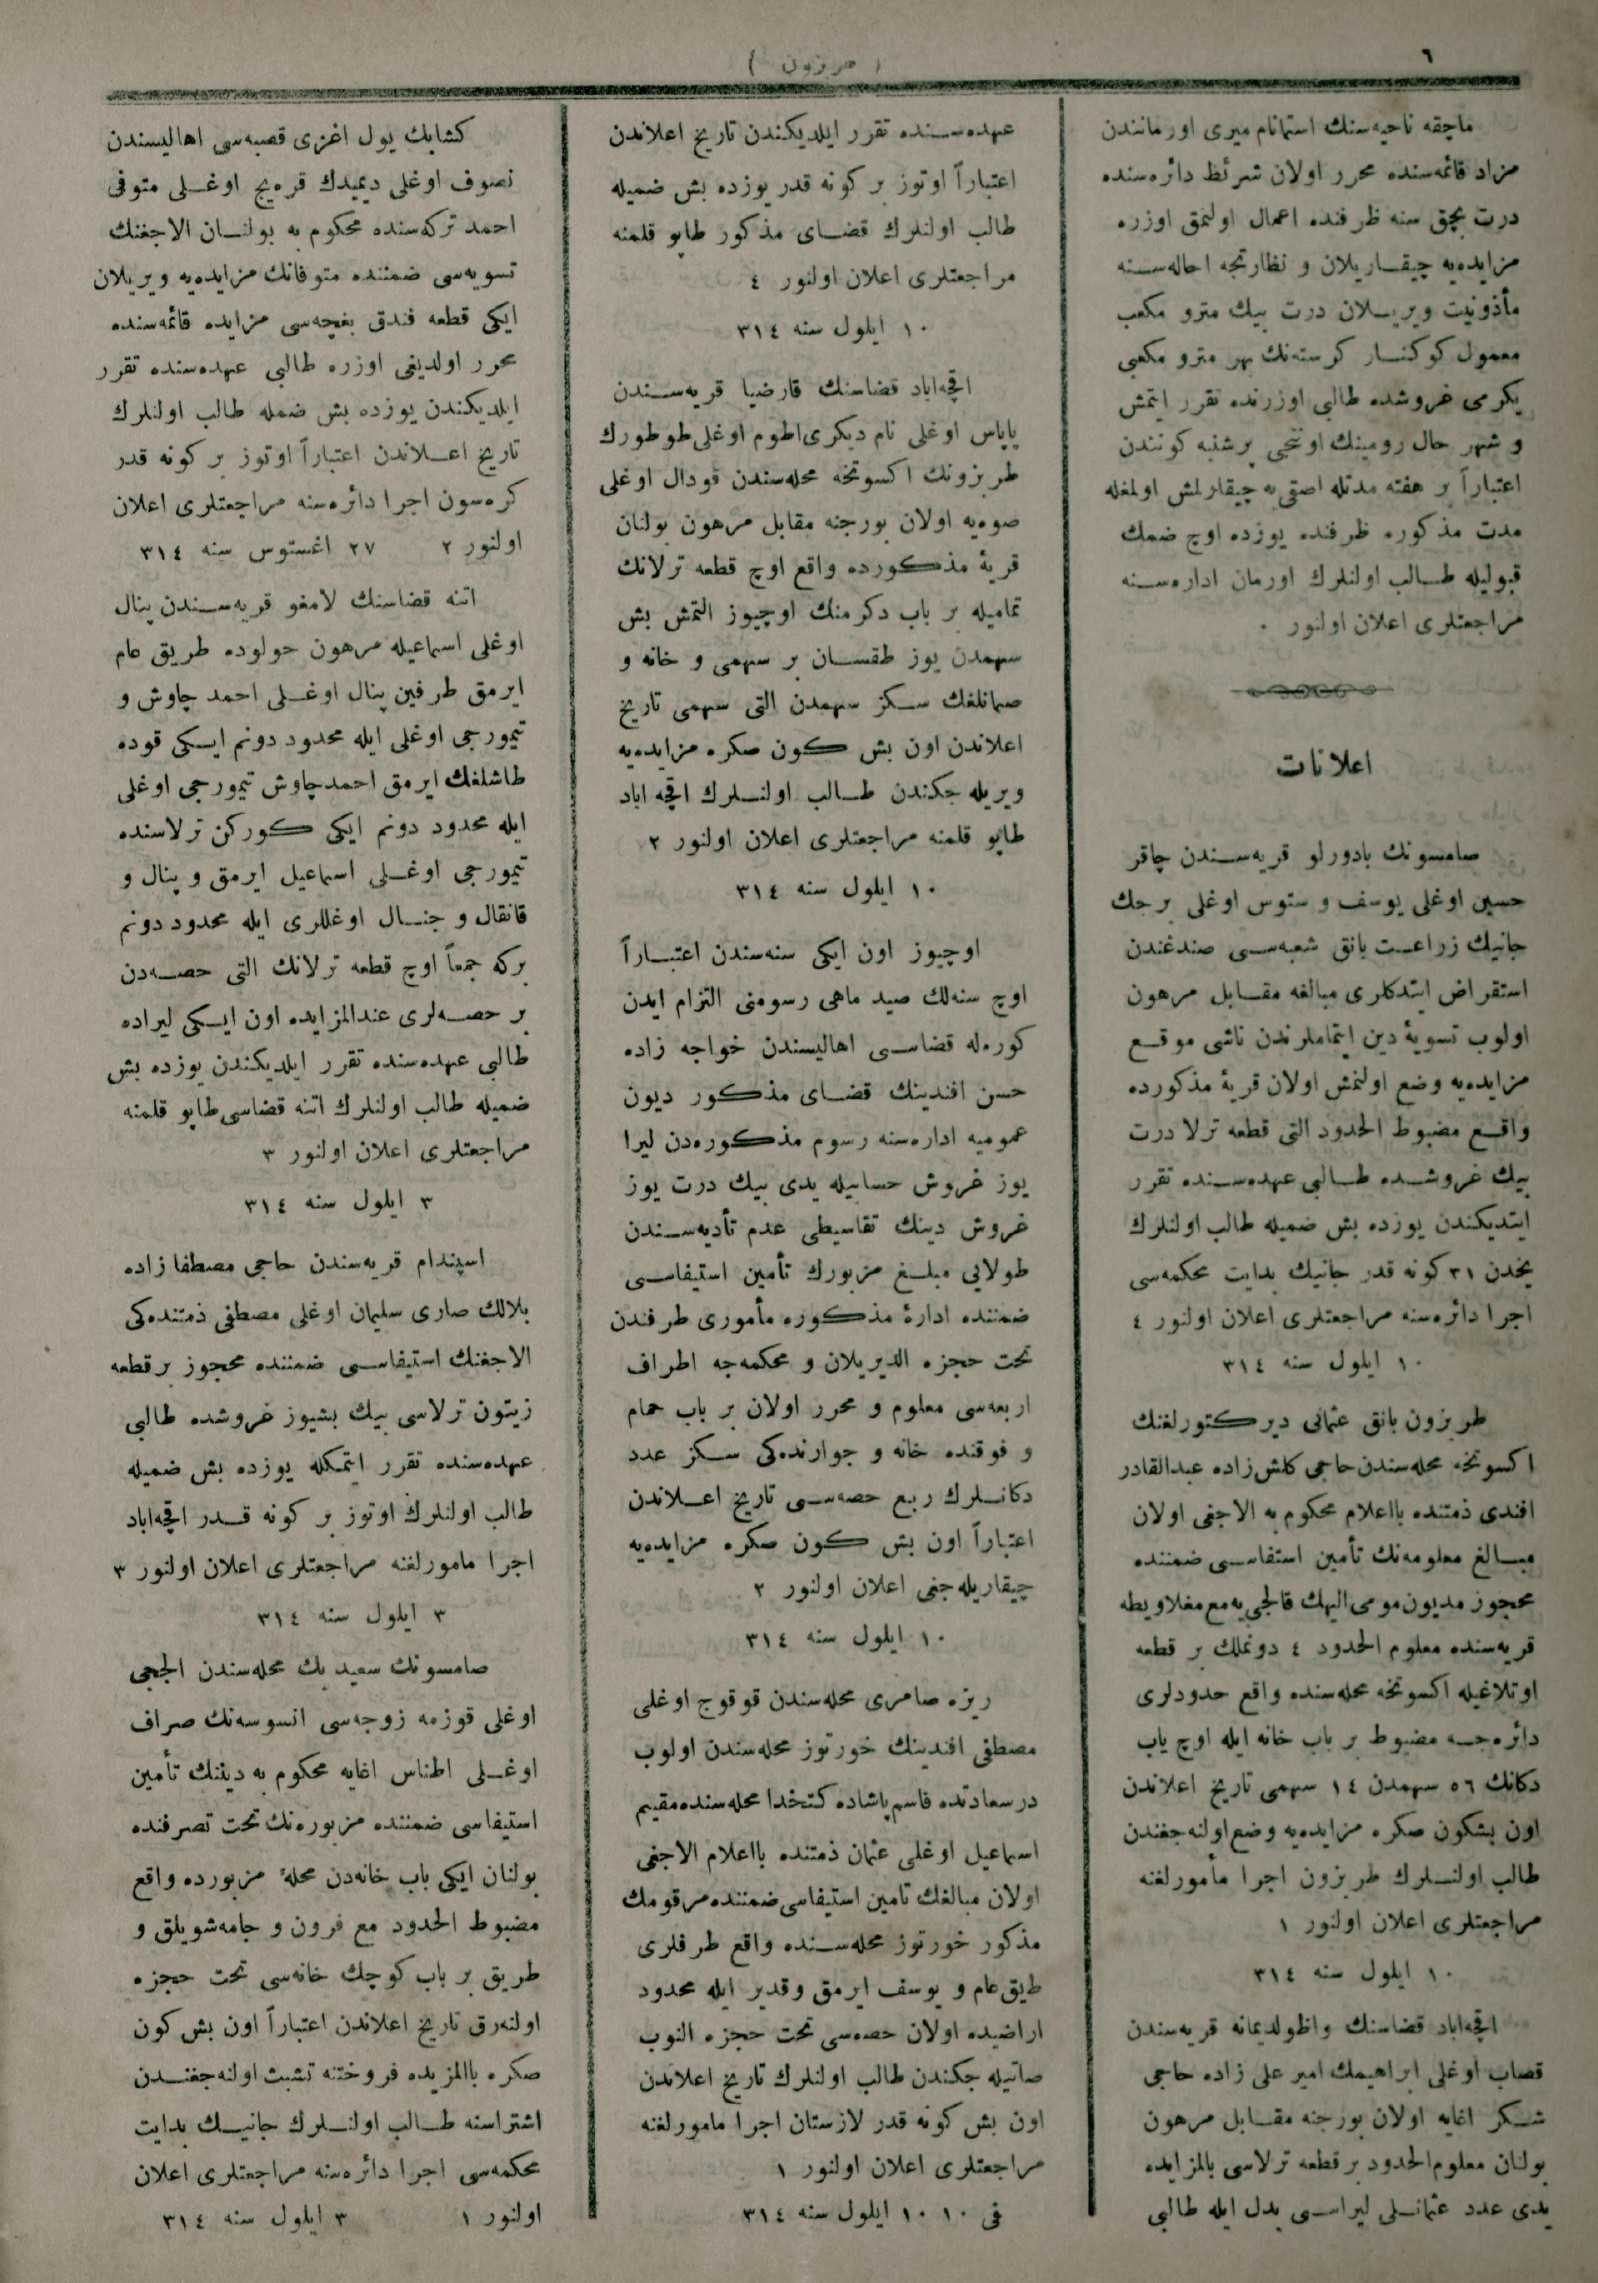 ٦
( طربزون )
ماچقه ناحیه‌سنك استمانام میری اورمانندن
مزاد قائمه‌سنده محرر اولان شرائط دائره‌سنده
درت بچق سنه ظرفنده اعمال اولنمق اوزره
مزایده‌یه چیقاریلان و نظارتجه احاله‌سنه
مأذونیت ویریلان درت بیك مترو مكعب
معمول كوكنار كرسته‌نك بهر مترو مكعبی
یكرمی غروشده طالبی اوزرنده تقرر ایتمش
و شهر حال رومینك اوننجی پرشنبه كونندن
اعتباراً بر هفته مدتله اصقی‌یه چیقارلمش اولمغله
مدت مذكوره ظرفنده یوزده اوچ ضمك
قبولیله طالب اولنلرك اورمان اداره‌سنه
مراجعتلری اعلان اولنور ۰
اعلانات
صامسونك بادورلو قریه‌سندن چاقر
حسین اوغلی یوسف و ستوس اوغلی برجك
جانیك زراعت بانق شعبه‌سی صندغندن
استقراض ایتدكلری مبالغه مقابل مرهون
اولوب تسویهٔ دین ایتماملرندن ناشی موقع
مزایده‌یه وضع اولنمش اولان قریهٔ مذكورده
واقع مضبوط الحدود التی قطعه ترلا درت
بیك غروشده طالبی عهده‌سنده تقرر
ایتدیكندن یوزده بش ضمیله طالب اولنلرك
یخدن ۳۱ كونه قدر جانیك بدایت محكمه‌سی
اجرا دائره‌سنه مراجعتلری اعلان اولنور ٤
١٠ ایلول سنه ٣١٤
طربزون بانق عثمانی دیركتورلغنك
اكسوتخه محله‌سندن حاجی كلش زاده عبدالقادر
افندی ذمتنده بااعلام محكوم به الاجغی اولان
مبالغ معلومه‌نك تأمین استفاسی ضمننده
محجوز مدیون مومی الیهك قالجی‌یه مع مغلاویطه
قریه‌سنده معلوم الحدود ٤ دونملك بر قطعه
اوتلاغیله اكسوتخه محله‌سنده واقع حدودلری
دائره‌جه مضبوط بر باب خانه ایله اوچ باب
دكانك ٥٦ سهمدن ١٤ سهمی تاریخ اعلاندن
اون بشكون صكره مزایده‌یه وضع اولنه‌جغندن
طالب اولنلرك طربزون اجرا مأمورلغنه
مراجعتلری اعلان اولنور ١
١٠ ایلول سنه ٣١٤
اقچه‌اباد قضاسنك واظولدیمانه قریه‌سندن
قصاب اوغلی ابراهیمك امیر علی زاده حاجی
شكر اغایه اولان بورجنه مقابل مرهون
بولنان معلوم الحدود بر قطعه ترلاسی بالمزایده
یدی عدد عثمانلی لیراسی بدل ایله طالبی
عهده‌سنده تقرر ایلدیكندن تاریخ اعلاندن
اعتباراً اوتوز بر كونه قدر یوزده بش ضمیله
طالب اولنلرك قضای مذكور طاپو قلمنه
مراجعتلری اعلان اولنور ٤
١٠ ایلول سنه ٣١٤
اقچه‌اباد قضاسنك قارضیا قریه‌سندن
پاپاس اوغلی نام دیكری اطوم اوغلی طوطورك
طربزونك اكسوتخه محله‌سندن قودال اوغلی
صوه‌یه اولان بورجنه مقابل مرهون بولنان
قریهٔ مذكورده واقع اوچ قطعه ترلانك
تمامیله بر باب دكرمنك اوچیوز التمش بش
سهمدن یوز طقسان بر سهمی و خانه و
صمانلغك سكز سهمدن التی سهمی تاریخ
اعلاندن اون بش كون صكره مزایده‌یه
ویریله جكندن طالب اولنلرك اقچه اباد
طاپو قلمنه مراجعتلری اعلان اولنور ٢
١٠ ایلول سنه ٣١٤
اوچیوز اون ایكی سنه‌سندن اعتباراً
اوچ سنه‌لك صید ماهی رسومنی التزام ایدن
كوره‌له قضاسی اهالیسندن خواجه زاده
حسن افندینك قضای مذكور دیون
عمومیه اداره‌سنه رسوم مذكوره‌دن لیرا
یوز غروش حسابیله یدی بیك درت یوز
غروش دینك تقاسیطی عدم تأدیه‌سندن
طولایی مبلغ مزبورك تأمین استیفاسی
ضمننده ادارهٔ مذكوره مأموری طرفندن
تحت حجزه الدیریلان و محكمه‌جه اطراف
اربعه‌سی معلوم و محرر اولان بر باب حمام
و فوقنده خانه و جوارنده‌كی سكز عدد
دكانلرك ربع حصه‌سی تاریخ اعلاندن
اعتباراً اون بش كون صكره مزایده‌یه
چیقاریله‌جغی اعلان اولنور ٢
١٠ ایلول سنه ٣١٤
ریزه صامری محله‌سندن قوقوج اوغلی
مصطفی افندینك خورتوز محله‌سندن اولوب
درسعادتده قاسم پاشاده كتخدا محله‌سنده مقیم
اسماعیل اوغلی عثمان ذمتنده بااعلام الاجغی
اولان مبالغك تامین استیفاسی ضمننده مرقومك
مذكور خورتوز محله‌سنده واقع طرفلری
طریق عام و یوسف ایرمق و قدیر ایله محدود
اراضیده اولان حصه‌سی تحت حجزه النوب
صاتیله جكندن طالب اولنلرك تاریخ اعلاندن
اون بش كونه قدر لازستان اجرا مامورلغنه
مراجعتلری اعلان اولنور ١
فی ١٠ ١٠ ایلول سنه ٣١٤
كشابك یول اغزی قصبه‌سی اهالیسندن
نصوف اوغلی دیمیدك قره‌یج اوغلی متوفی
احمد تركه‌سنده محكوم به بولنان الاجغنك
تسویه‌سی ضمننده متوفانك مزایده‌یه ویریلان
ایكی قطعه فندق بغچه‌سی مزایده قائمه‌سنده
محرر اولدیغی اوزره طالبی عهده‌سنده تقرر
ایلدیكندن یوزده بش ضمله طالب اولنلرك
تاریخ اعلاندن اعتباراً اوتوز بر كونه قدر
كره‌سون اجرا دائره‌سنه مراجعتلری اعلان
اولنور ٢ ٢٧ اغستوس سنه ٣١٤
اتنه قضاسنك لامغو قریه‌سندن پنال
اوغلی اسماعیله مرهون حولوده طریق عام
ایرمق طرفین پنال اوغلی احمد چاوش و
تیمورجی اوغلی ایله محدود دونم ایكی قوده
طاشلغك ایرمق احمد چاوش تیمورجی اوغلی
ایله محدود دونم ایكی كوركن ترلاسنده
تیمورجی اوغلی اسماعیل ایرمق و پنال و
قانقال و جنال اوغللری ایله محدود دونم
بركه جمعاً اوچ قطعه ترلانك التی حصه‌دن
بر حصه‌لری عندالمزایده اون ایكی لیراده
طالبی عهده‌سنده تقرر ایلدیكندن یوزده بش
ضمیله طالب اولنلرك اتنه قضاسی طاپو قلمنه
مراجعتلری اعلان اولنور ٣
٣ ایلول سنه ٣١٤
اسپندام قریه‌سندن حاجی مصطفا زاده
بلالك صاری سلیمان اوغلی مصطفی ذمتنده‌كی
الاجغنك استیفاسی ضمننده محجوز بر قطعه
زیتون ترلاسی بیك بشیوز غروشده طالبی
عهده‌سنده تقرر ایتمكله یوزده بش ضمیله
طالب اولنلرك اوتوز بر كونه قدر اقچه‌اباد
اجرا مامورلغنه مراجعتلری اعلان اولنور ٣
٣ ایلول سنه ٣١٤
صامسونك سعید بك محله‌سندن الجمی
اوغلی قوزمه زوجه‌سی انسوسه‌نك صراف
اوغلی اطناس اغایه محكوم به دیننك تأمین
استیفاسی ضمننده مزبوره‌نك تحت تصرفنده
بولنان ایكی باب خانه‌دن محلهٔ مزبورده واقع
مضبوط الحدود مع فرون و جامه‌شویلق و
طریق بر باب كوچك خانه‌سی تحت حجزه
اولنه‌رق تاریخ اعلاندن اعتباراً اون بش كون
صكره بالمزیده فروختنه تشبث اولنه‌جغندن
اشتراسنه طالب اولنلرك جانیك بدایت
محكمه‌سی اجرا دائره‌سنه مراجعتلری اعلان
اولنور ١ ٣ ایلول سنه ٣١٤